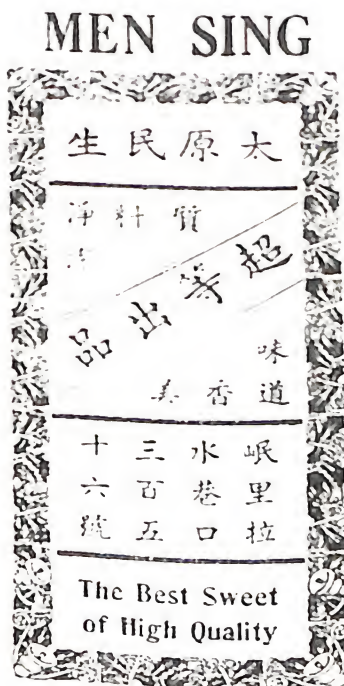 MEN SING
太原民生
質料淨
超等出品
味
道香美
岷里拉
水巷口
三百五
十六號
The Best Sweet
of High Quality